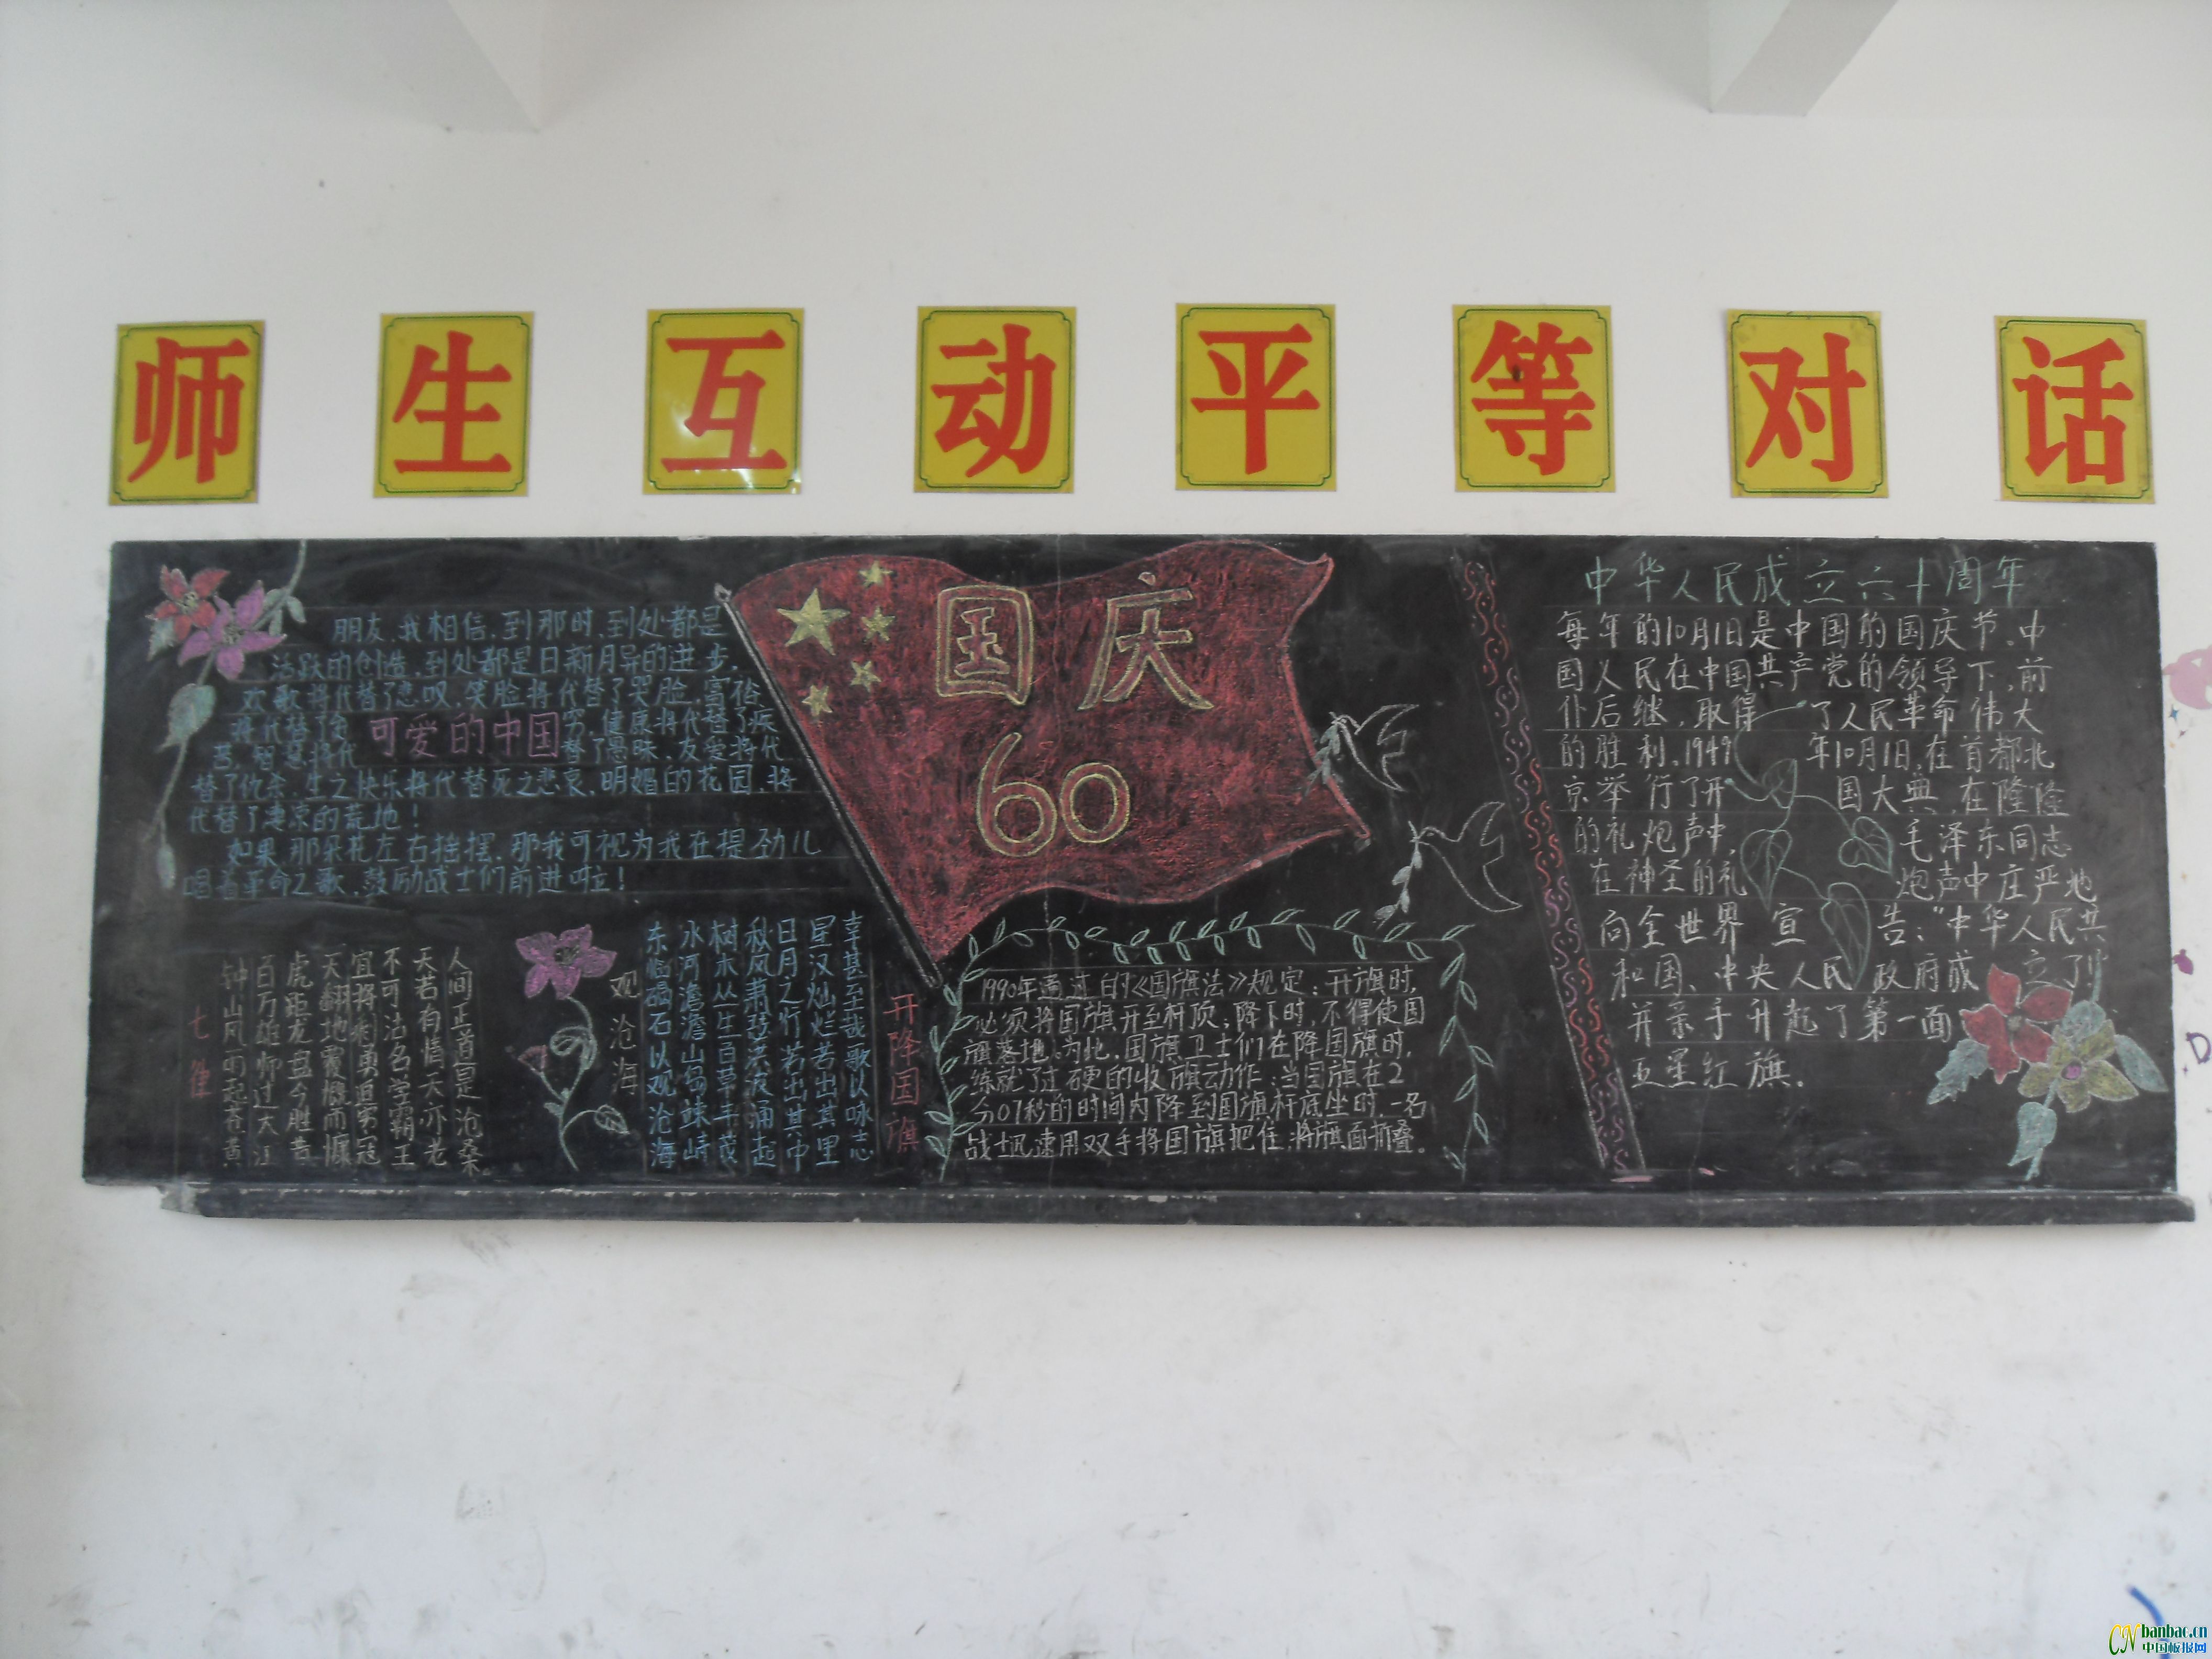 师生互动平等对话
国庆
60
朋友,我相信,到那时,到处都是
活跃的创造,到处都是日新月异的进步,
欢歌将代替了悲叹,笑脸将代替了哭脸,富裕
将代替了贫
可爱的中国
穷,健康将代替了疾
苦,智慧将代
替了愚昧,友爱将代
替了仇杀,生之快乐将代替死之悲哀,明媚的花园,将
代替了凄凉的荒地!
如果那朵花左右摇摆,那我可视为我在提劲儿
唱着革命之歌,鼓励战士们前进啦!
七律
钟山风雨起苍黄
百万雄师过大江
虎距龙盘今胜昔
天翻地覆慨而慷
宜将剩勇追穷寇
不可沽名学霸王
天若有情天亦老
人间正道是沧桑。
观沧海
东临碣石以观沧海
水河澹澹山岛竦峙
树木丛生百草丰茂
秋风萧瑟洪波涌起
日月之行若出其中
星汉灿烂若出其里
幸甚至哉歌以咏志
升降国旗
1990年通过的《国旗法》规定:升旗时,
必须将国旗升至杆顶;降下时,不得使国
旗落地。为此,国旗卫士们在降国旗时,
练就了过硬的收旗动作:当国旗在2
分07秒的时间内降到国旗杆底坐时,一名
战士迅速用双手将国旗把住,将旗面折叠。
中华人民成立六十周年
每年的10月1日是中国的国庆节.中
国人民在中国共产党的领导下,前
仆后继,取得了人民革命伟大
的胜利.1949年10月1日,在首都北
京举行了开国大典,在隆隆
的礼炮声中,毛泽东同志
在神圣的礼炮声中庄严地
向全世界宣告:"中华人民共
和国、中央人民政府成立了!
并亲手升起了第一面
五星红旗.
CN banbao.cn
中国板报网